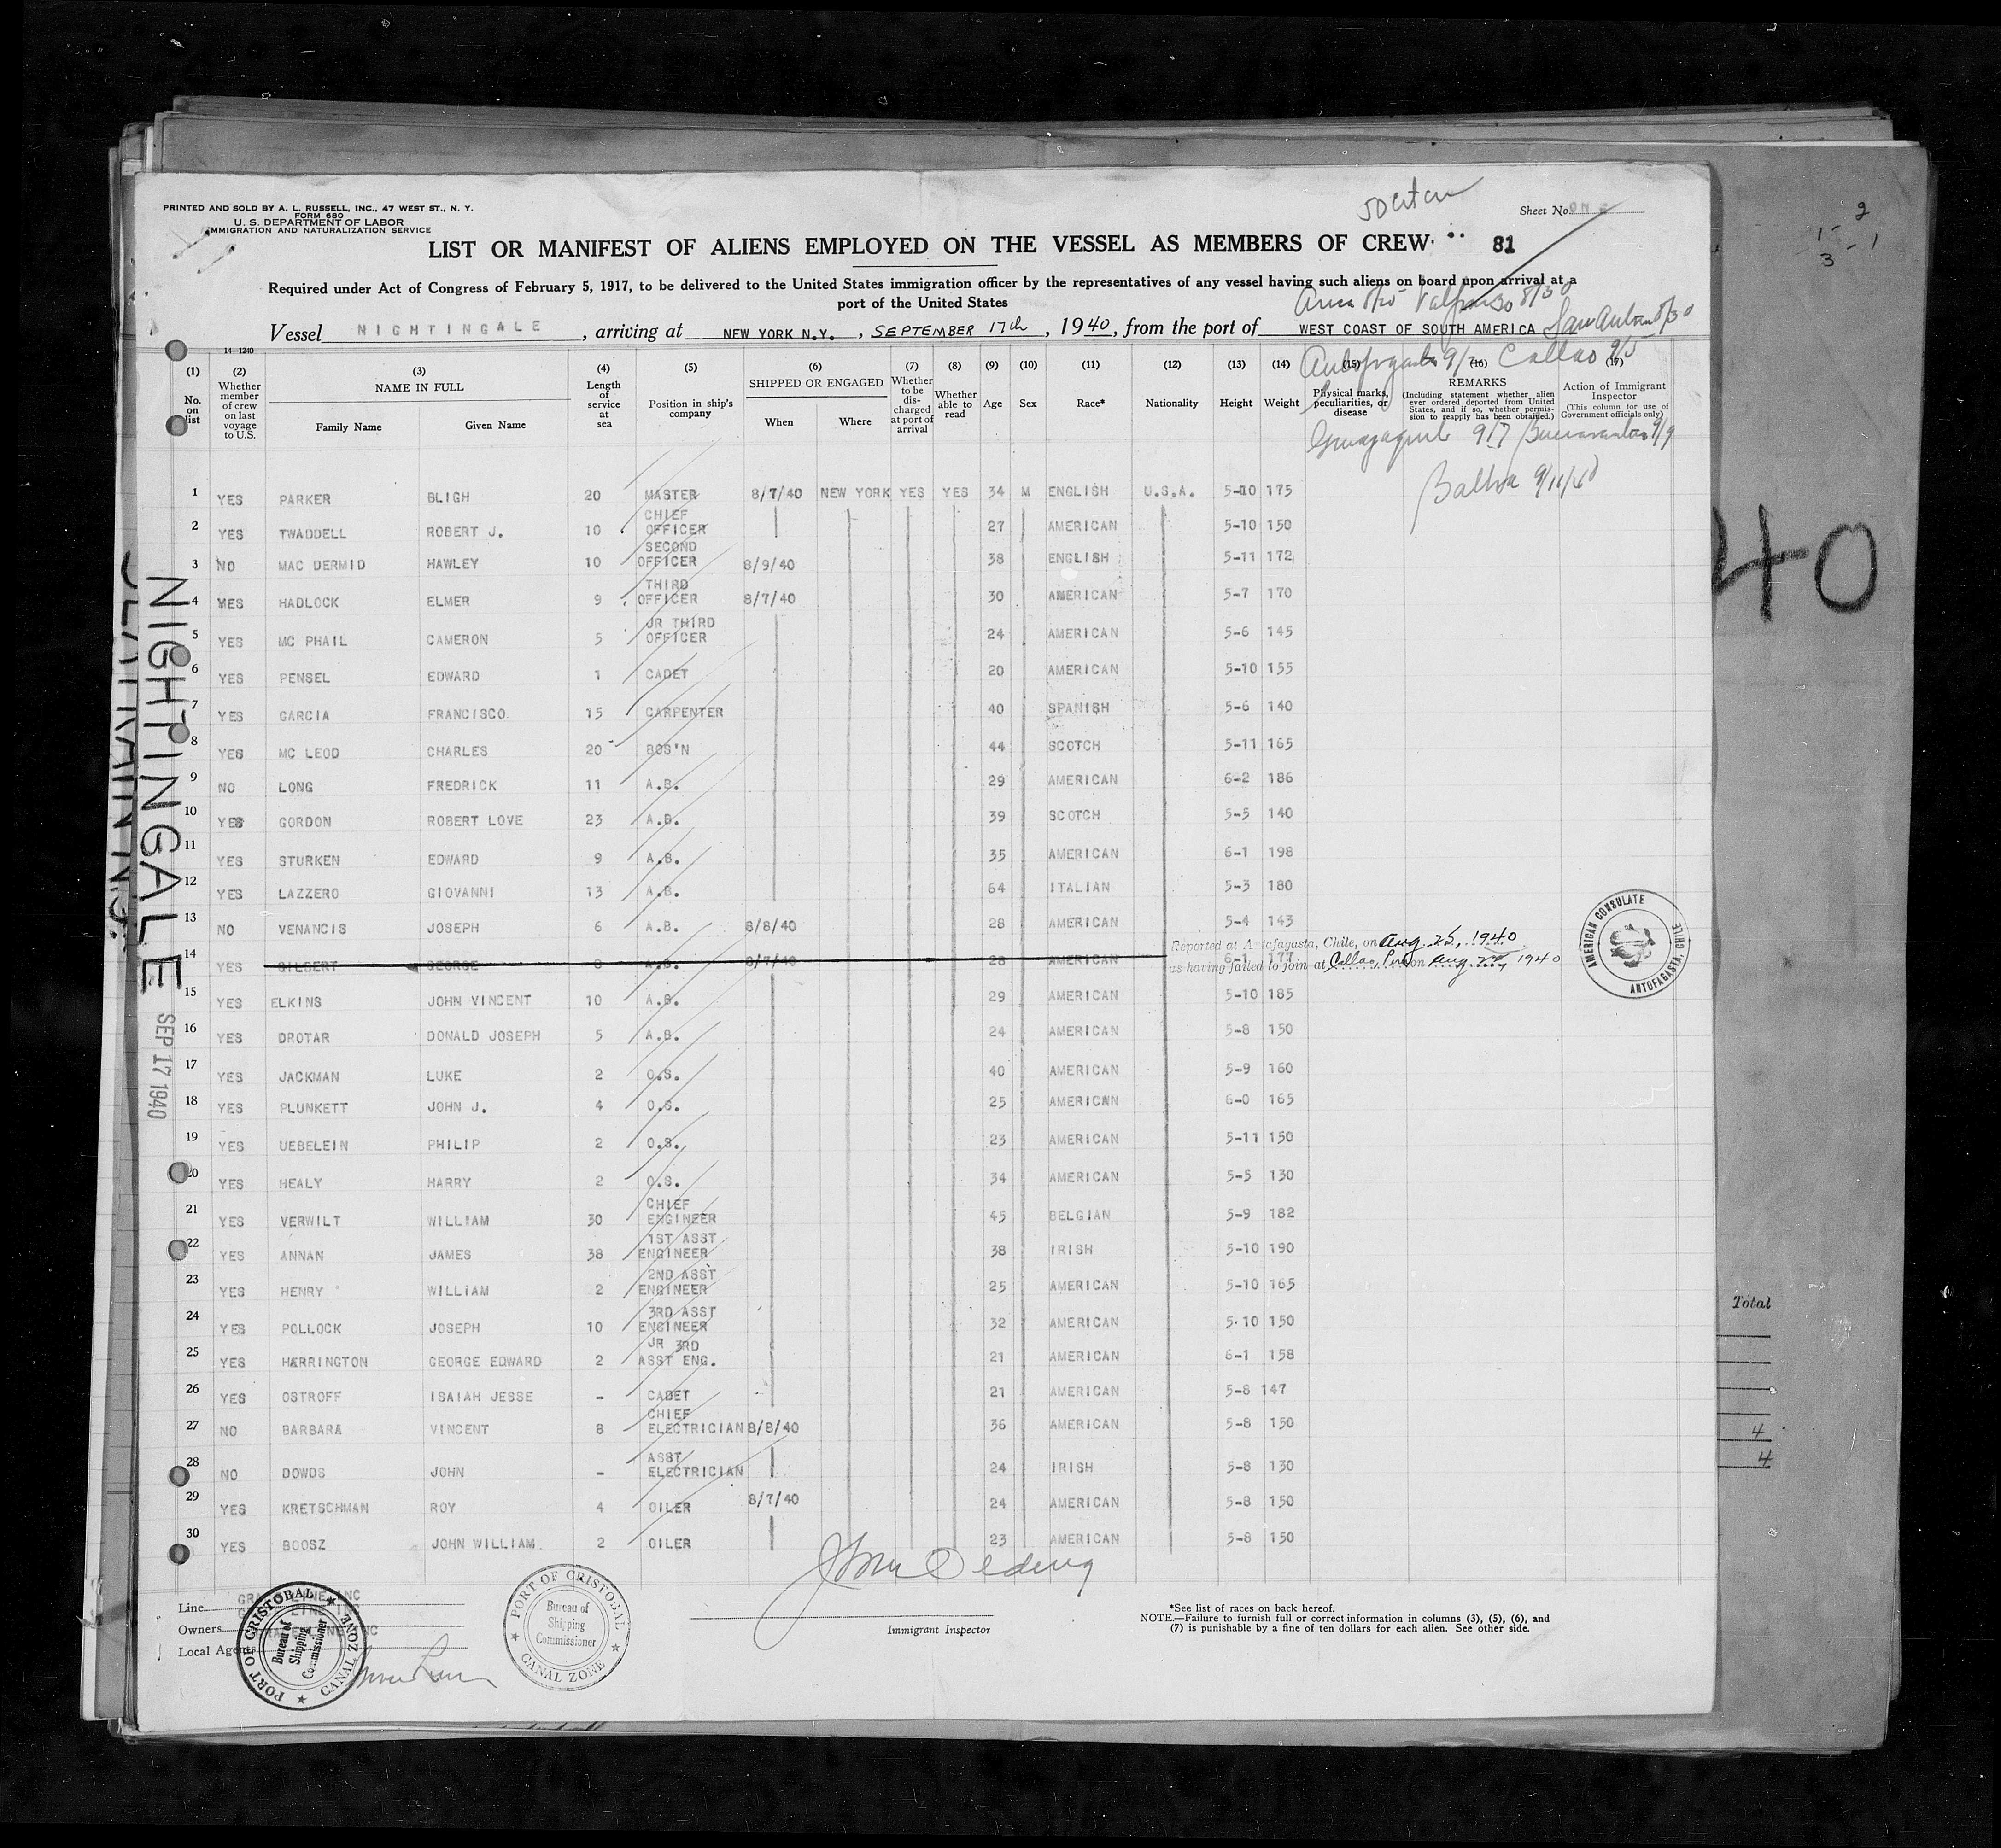 50 crew
PRINTED AND SOLD BY A. L. RUSSELL, INC., 47 WEST ST., N. Y.
FORM 680
U. S. DEPARTMENT OF LABOR
IMMIGRATION AND NATURALIZATION SERVICE
Sheet No. ONE
LIST OR MANIFEST OF ALIENS EMPLOYED ON THE VESSEL AS MEMBERS OF CREW 81
Required under Act of Congress of February 5, 1917, to be delivered to the United States immigration officer by the representatives of any vessel having such aliens on board upon arrival at a
port of the United States
Arica 8/25 Valparaiso 8/30
Vessel NIGHTINGALE, arriving at NEW YORK N.Y., SEPTEMBER 17th, 1940, from the port of WEST COAST OF SOUTH AMERICA San Antonio 8/30
Antofagasta 9/2 Callao 9/5
14-1240
(1) No. on list
(2) Whether member of crew on last voyage to U.S.
(3) NAME IN FULL Family Name Given Name
(4) Length of service at sea
(5) Position in ship's company
(6) SHIPPED OR ENGAGED When Where
(7) Whether to be discharged at port of arrival
(8) Whether able to read
(9) Age
(10) Sex
(11) Race*
(12) Nationality
(13) Height
(14) Weight
(15) Physical marks, peculiarities, or disease
(16) REMARKS (Including statement whether alien ever ordered deported from United States, and if so, whether permission to reapply has been obtained.)
(17) Action of Immigrant Inspector (This column for use of Government officials only)
Guayaquil 9/7 Buenaventura 9/9
Balboa 9/11/40
1 YES PARKER BLIGH 20 MASTER 8/7/40 NEW YORK YES YES 34 M ENGLISH U.S.A. 5-10 175
2 YES TWADDELL ROBERT J. 10 CHIEF OFFICER 27 AMERICAN 5-10 150
3 NO MAC DERMID HAWLEY 10 SECOND OFFICER 8/9/40 38 ENGLISH 5-11 172
4 YES HADLOCK ELMER 9 THIRD OFFICER 8/7/40 30 AMERICAN 5-7 170
5 YES MC PHAIL CAMERON 5 JR THIRD OFFICER 24 AMERICAN 5-6 145
6 YES PENSEL EDWARD 1 CADET 20 AMERICAN 5-10 155
7 YES GARCIA FRANCISCO 15 CARPENTER 40 SPANISH 5-6 140
8 YES MC LEOD CHARLES 20 BOS'N 44 SCOTCH 5-11 165
9 NO LONG FREDRICK 11 A.B. 29 AMERICAN 6-2 186
10 YES GORDON ROBERT LOVE 23 A.B. 39 SCOTCH 5-5 140
11 YES STURKEN EDWARD 9 A.B. 35 AMERICAN 6-1 198
12 YES LAZZERO GIOVANNI 13 A.B. 64 ITALIAN 5-3 180
13 NO VENANCIS JOSEPH 6 A.B. 8/8/40 28 AMERICAN 5-4 143
Reported at Antofagasta, Chile, on Aug. 25, 1940
14 YES GILBERT GEORGE 8 A.B. 8/7/40 28 AMERICAN 6-1 177
as having failed to join at Callao, Peru on Aug. 22 1940
AMERICAN CONSULATE ANTOFAGASTA, CHILE
15 YES ELKINS JOHN VINCENT 10 A.B. 29 AMERICAN 5-10 185
16 YES DROTAR DONALD JOSEPH 5 A.B. 24 AMERICAN 5-8 150
17 YES JACKMAN LUKE 2 O.S. 40 AMERICAN 5-9 160
18 YES PLUNKETT JOHN J. 4 O.S. 25 AMERICAN 6-0 165
19 YES UEBELEIN PHILIP 2 O.S. 23 AMERICAN 5-11 150
20 YES HEALY HARRY 2 O.S. 34 AMERICAN 5-5 130
21 YES VERWILT WILLIAM 30 CHIEF ENGINEER 45 BELGIAN 5-9 182
22 YES ANNAN JAMES 38 1ST ASST ENGINEER 38 IRISH 5-10 190
23 YES HENRY WILLIAM 2 2ND ASST ENGINEER 25 AMERICAN 5-10 165
24 YES POLLOCK JOSEPH 10 3RD ASST ENGINEER 32 AMERICAN 5-10 150
25 YES HARRINGTON GEORGE EDWARD 2 JR 3RD ASST ENG. 21 AMERICAN 6-1 158
26 YES OSTROFF ISAIAH JESSE - CADET 21 AMERICAN 5-8 147
27 NO BARBARA VINCENT 8 CHIEF ELECTRICIAN 8/8/40 36 AMERICAN 5-8 150
28 NO DOWDS JOHN - ASST ELECTRICIAN 24 IRISH 5-8 130
29 YES KRETSCHMAN ROY 4 OILER 8/7/40 24 AMERICAN 5-8 150
30 YES BOOSZ JOHN WILLIAM 2 OILER 23 AMERICAN 5-8 150
Line GRACE LINE INC
Owners GRACE LINE INC
Local Agents GRACE LINE INC
PORT OF CRISTOBAL CANAL ZONE
Bureau of Shipping Commissioner
PORT OF CRISTOBAL CANAL ZONE
Bureau of Shipping Commissioner
Immigrant Inspector
*See list of races on back hereof.
NOTE.—Failure to furnish full or correct information in columns (3), (5), (6), and
(7) is punishable by a fine of ten dollars for each alien. See other side.
NIGHTINGALE
SEP 17 1940
40
2
1 -
3 - 1
Total
4
4